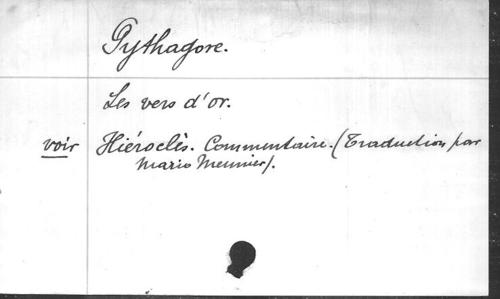 Pythagore.
Les vers d'or.
voir Hiéroclès. Commentaire. (Traduction par
Mario Meunier).